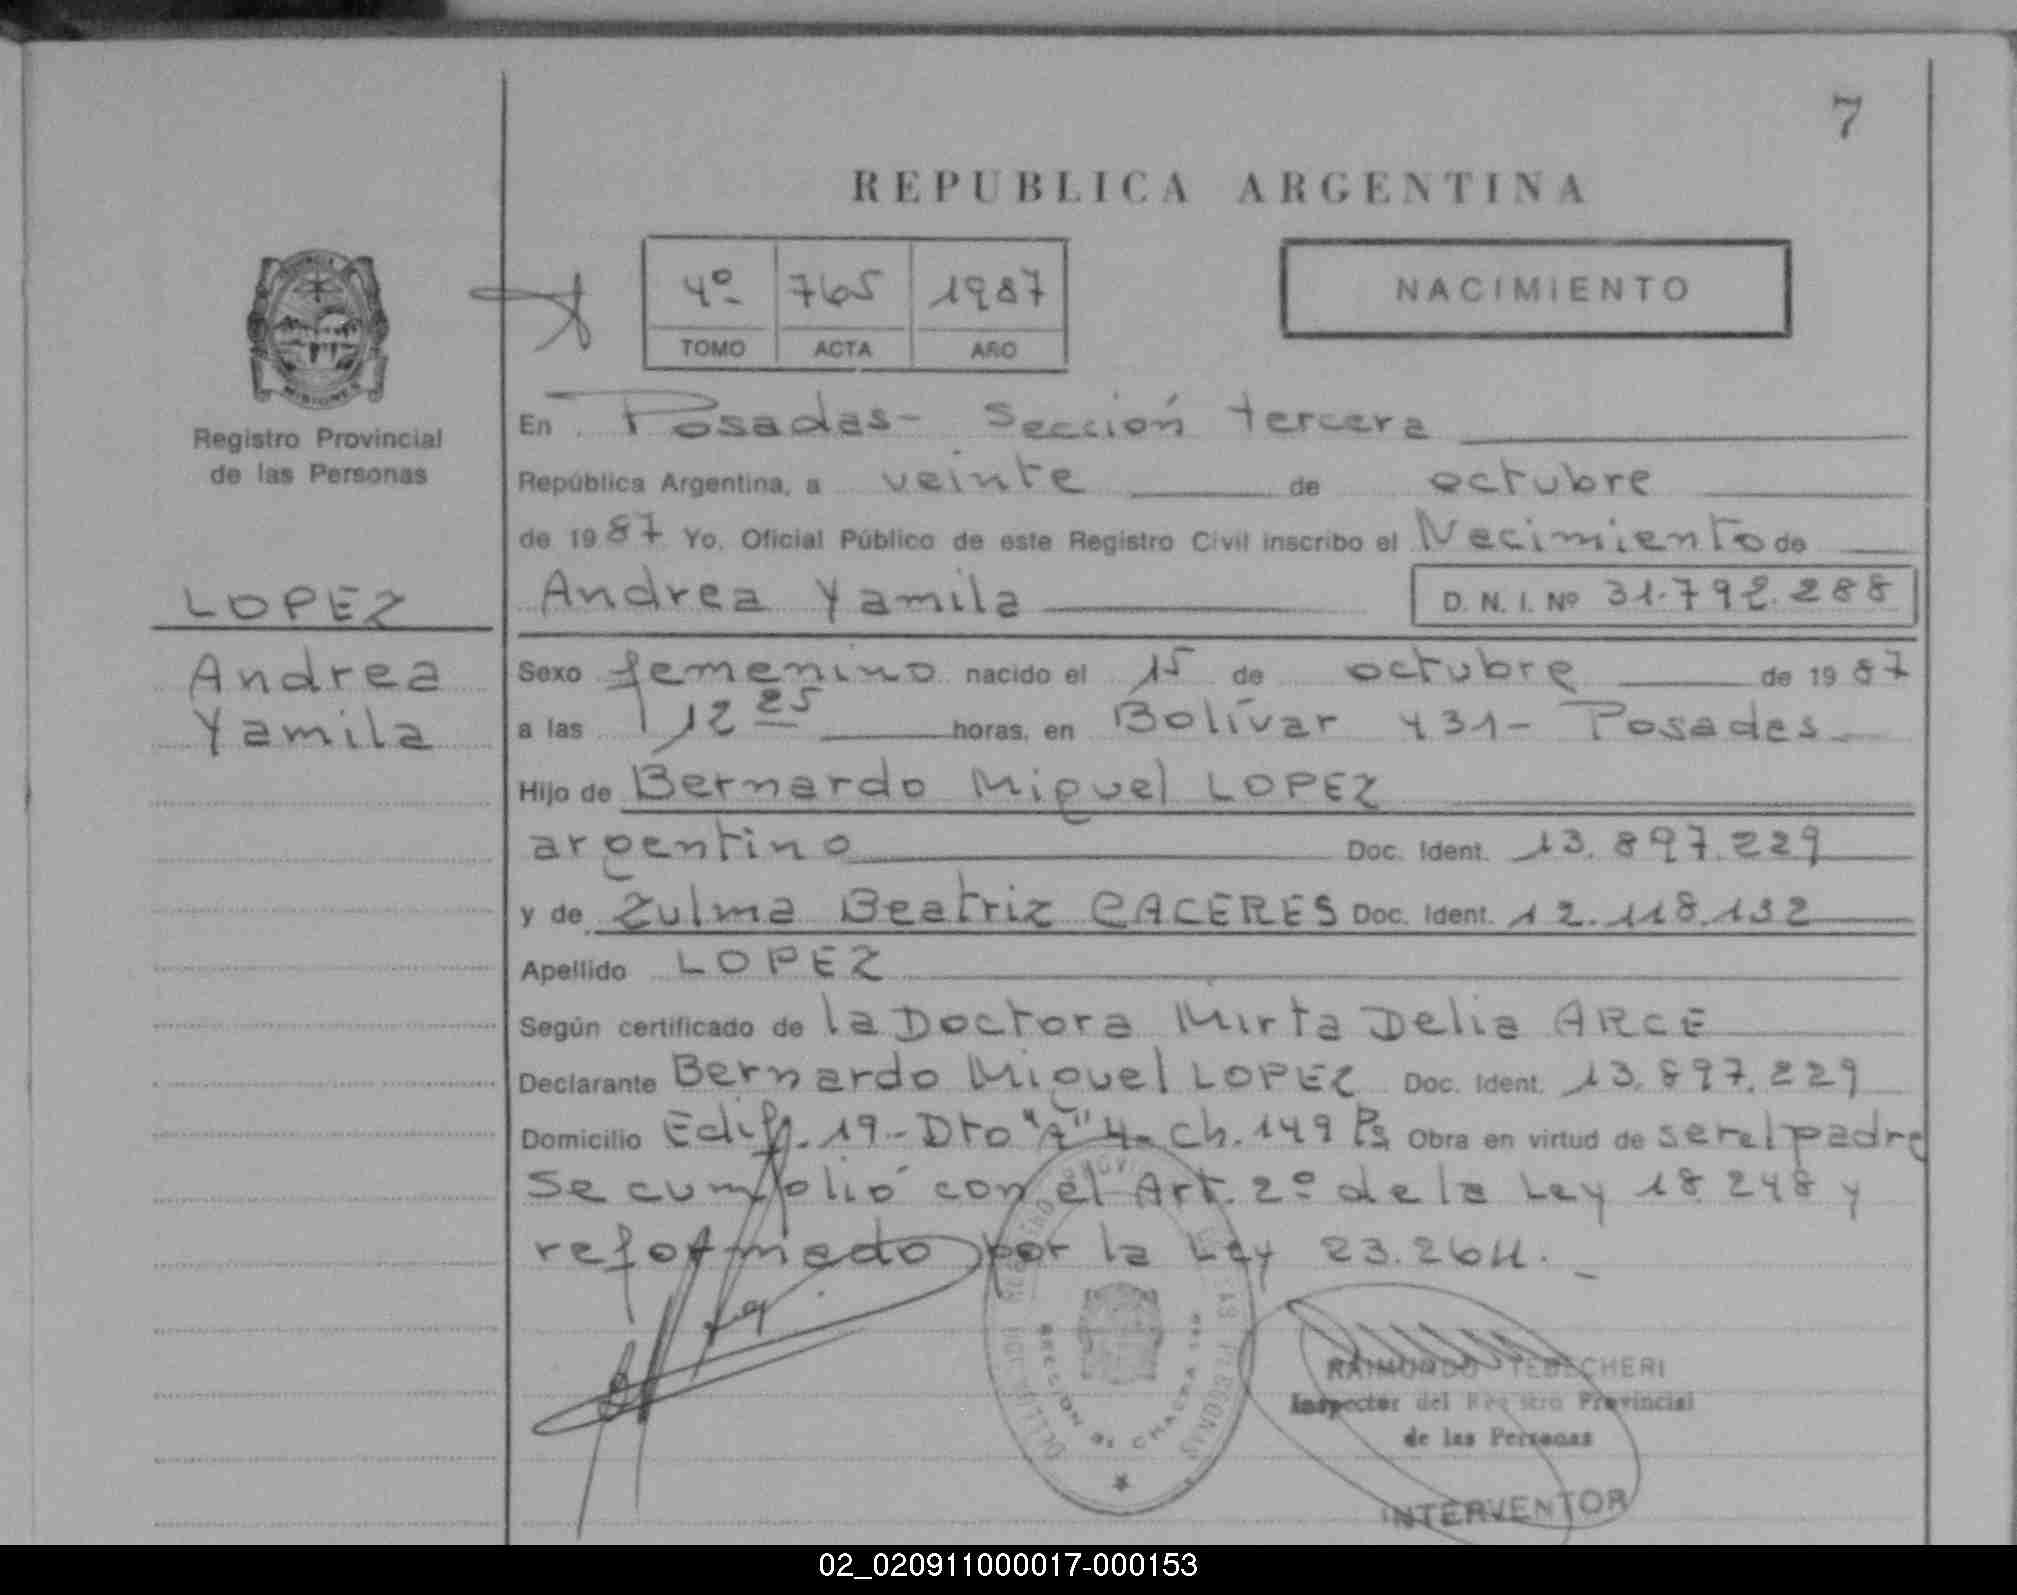 7
REPUBLICA ARGENTINA
4º 765 1987
TOMO ACTA AÑO
NACIMIENTO
MISIONES
Registro Provincial
de las Personas
LOPEZ
Andrea
Yamila
En Posadas - Sección tercera
República Argentina, a veinte de octubre
de 1987 Yo, Oficial Público de este Registro Civil inscribo el Nacimiento de
Andrea Yamila D. N. I. Nº 31.792.288
Sexo femenino nacido el 15 de octubre de 1987
a las 12 25 horas, en Bolívar 431 - Posadas
Hijo de Bernardo Miguel LOPEZ
argentino Doc. Ident. 13.897.229
y de Zulma Beatriz CACERES Doc. Ident. 12.118.132
Apellido LOPEZ
Según certificado de la Doctora Mirta Delia ARCE
Declarante Bernardo Miguel LOPEZ Doc. Ident. 13.897.229
Domicilio Edif. 19 - Dto "A" 4 - Ch. 149 Ps Obra en virtud de ser el padre
Se cumplió con el Art. 2º de la Ley 18 248 y
reformado por la Ley 23.264.-
RAIMUNDO TEBECHERI
Inspector del Registro Provincial
de las Personas
INTERVENTOR
02_020911000017-000153